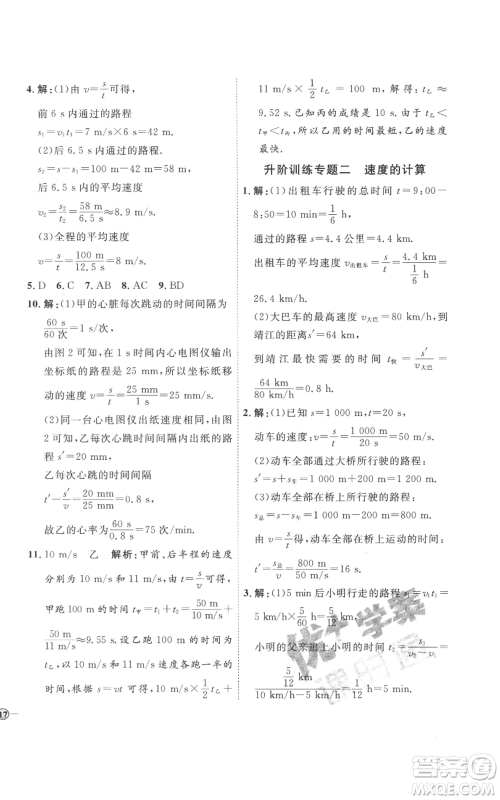 4. 解:(1)由 v=s/t 可得,
前 6 s 内通过的路程
s₁=v₁t₁=7 m/s×6 s=42 m.
(2)后 6.5 s 的平均速度
v₂=s₂/t₂=58 m/6.5 s≈8.9 m/s.
(3)全程的平均速度
v=s/t=100 m/12.5 s=8 m/s.
5. D 6. C 7. AB 8. AC 9. BD
10. 解:(1)甲的心脏每次跳动的时间间隔为
60 s/60 次=1 s/次,
由图 2 可知,在 1 s 时间内心电图仪输出
坐标纸的路程为 25 mm,所以坐标纸移
动的速度 v=s/t=25 mm/1 s=25 mm/s.
(2)同一台心电图仪出纸速度相同,由
图 2 可知,乙每次心跳时间间隔内出纸的路程
s′=20 mm,
乙每次心跳的时间间隔
t′=s′/v=20 mm/25 mm/s=0.8 s,
故乙的心率为 60 s/0.8 s=75次.
11. 10 m/s 乙 解析:甲前、后半程的速度
分别为 10 m/s 和 11 m/s,由 v=s/t 可知,
甲跑 100 m 的时间 t甲=t₁+t₂=50 m/10 m/s
+50 m/11 m/s≈9.55 s. 设乙跑完全程的时间
为 t乙,由题意可知,各速度各跑一半的时
间,根据 s=vt 可得,10 m/s×1/2 t乙+
11 m/s×1/2 t乙=100 m,则 t乙≈
9.52 s. 已知丙的成绩是 9.69 s,则
t乙<t甲<t丙,所以乙用的时间少,乙的速度
最快.
升阶训练专题二 速度的计算
1. 解:(1)出租车行驶的总时间 t=9:00-
8:50=10 min=1/6 h,
通过的路程 s=4.4 km,
出租车的平均速度 v出租车=s/t=4.4 km/1/6 h=
26.4 km/h.
(2)大巴车的最高速度 v大巴=80 km/h,
到靖江距离 s′=64 km,
到靖江最快需要的时间 t快=s′/v大巴=
64 km/80 km/h=0.8 h.
2. 解:(1)已知 s=1 000 m,t=20 s,
动车的速度:v=s/t=1 000 m/20 s=50 m/s.
(2)动车全部通过大桥所行驶的路程:
s′=s+s车=1 000 m+200 m=1 200 m.
(3)动车全部在桥上所行驶的路程:
s总=s-s车=1 000 m-200 m=800 m,
由 v=s/t 得,动车全部在桥上运动的时间:
t=s总/v=800 m/50 m/s=16 s.
3. 解:(1)5 min 后小明行走的路程 s₁=v₁t=
5 km/h×5/60 h=5/12 km,
小明的父亲追上小明时,t₁=s₁/v₂-v₁=
5/12 km
17
优+学案
课时通